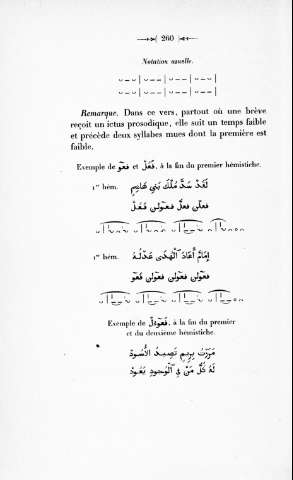 260
Notation usuelle.
⏑ – ⏑ | ⏑ – – | ⏑ – – | ⏑ – – |
⏑ – ⏑ | ⏑ – – | ⏑ – – | ⏑ – – |
Remarque. Dans ce vers, partout où une brève
reçoit un ictus prosodique, elle suit un temps faible
et précède deux syllabes mues dont la première est
faible.
Exemple de فَعُلْ et فعو, à la fin du premier hémistiche.
1er hém. لَقَدْ سَدَّ مُلْكَ بَنِي هَاشِمٍ
فعلن فعلُ فعولن فَعُلْ
1er hém. إِمَامٌ أَعَادَ ٱلْهُدَى عَدْلُهُ
فعولن فعولن فعولن فعو
Exemple de فَعُولْ, à la fin du premier
et du deuxième hémistiche.
مَرَرْتُ بِرِيمٍ تَصِيدُ الأُسُودْ
لَهُ كُلُّ مَنْ فِي ٱلْوُجُودِ يَعُودْ